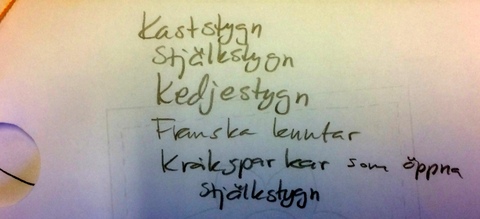 Kaststygn
Stjälkstygn
Kedjestygn
Franska knutar
Kråksparkar som öppna
Stjälkstygn